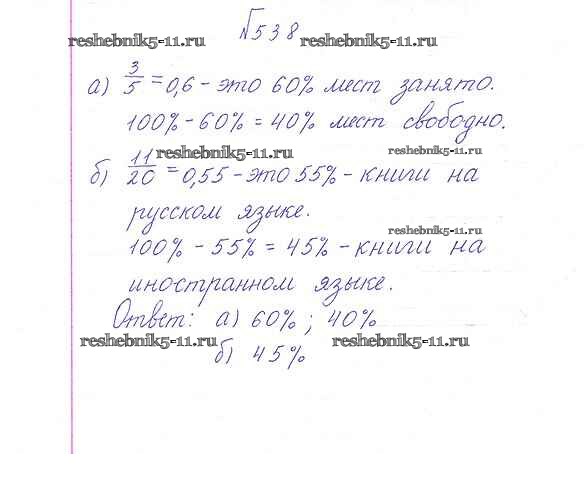 №538
reshebnik5-11.ru reshebnik5-11.ru
а) 3/5 = 0,6 - это 60% мест занято.
100% - 60% = 40% мест свободно.
reshebnik5-11.ru reshebnik5-11.ru
б) 11/20 = 0,55 - это 55% - книги на
русском языке.
reshebnik5-11.ru
100% - 55% = 45% - книги на
иностранном языке.
Ответ: а) 60%; 40%
reshebnik5-11.ru reshebnik5-11.ru
б) 45%